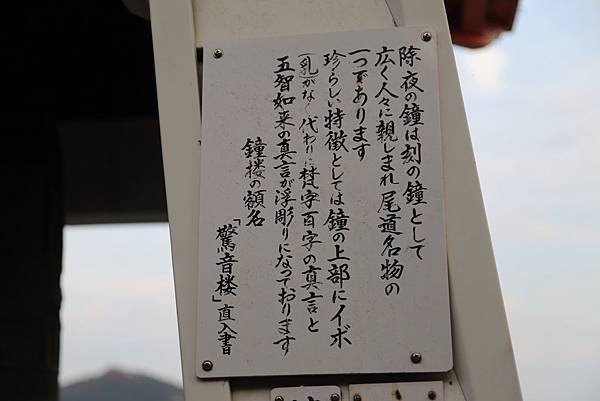 除夜の鐘は刻の鐘として
広く人々に親しまれ尾道名物の
一つであります
珍らしい特徴としては鐘の上部にイボ
(乳)がなく代わりに梵字百字の真言と
五智如来の真言が浮彫りになっております
鐘楼の額名
「驚音楼」直入書